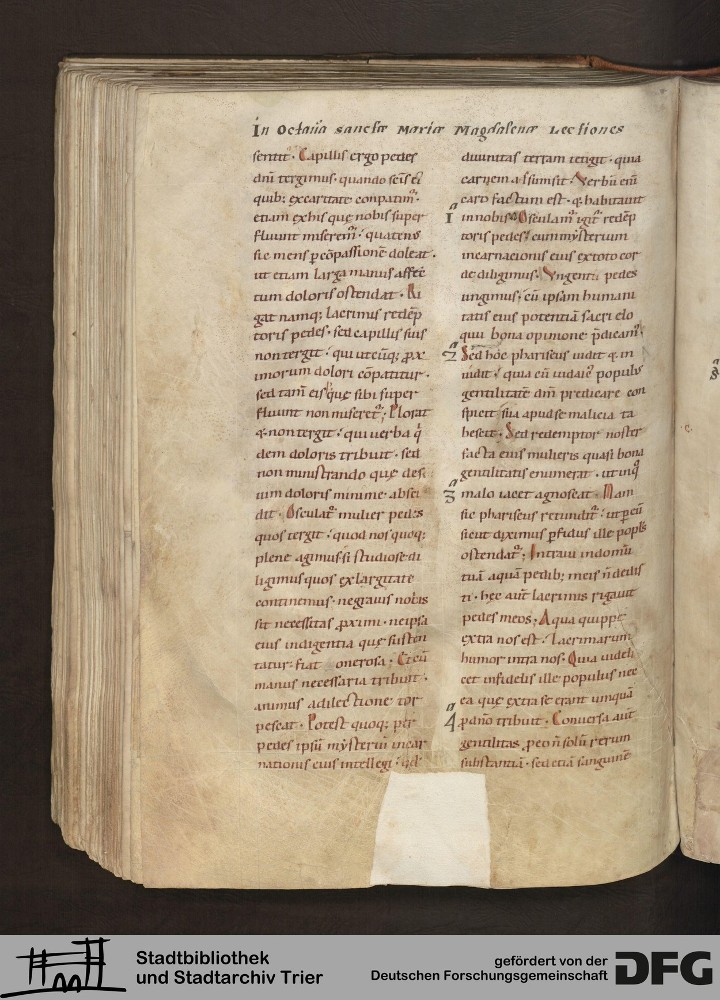 In Octaua sanctæ Mariæ Magdalenæ Lectiones
sentit · Capillis ergo pedes
dñi tergimus · quando sc̄is ei
quib; ex caritate conpatim᷑ ·
etiam ex his quę nobis super
fluunt miserem᷑ · quatenus
sic mens p cōpassionē doleat ·
ut etiam larga manus affec
tum doloris ostendat · Ri
gat namq; lacrimis redēp
toris pedes · sed capillis suis
non tergit · qui utcūq; prox
imorum dolori cōpatitur ·
sed tam̄ eis que sibi super
fluunt non miseret᷑; Plorat
& non tergit · qui uerba q̇
dem doloris tribuit · sed
non ministrando quę des
unt uim doloris minime absci
dit · Osculat᷑ mulier pedes
quos tergit · quod nos quoq;
plene agimus · si studiose di
ligimus quos ex largitate
continemus · ne grauis nobis
sit necessitas proximi · ne ipsa
eius indigentia quę susten
tatur · fiat onerosa; Et cū
manus necessaria tribuit ·
animus a dilectione tor
pescat · Potest quoq; per
pedes ipsū mysteriū incar
nationis eius intellegi · qd
diuinitas terram tetigit · quia
carnem assumsit · Verbū eni
caro factum est · & habitauit
1 in nobis · Osculam᷑ igit᷑ redēp
toris pedes · cum mysterium
incarnacionis eius ex toto cor
de diligimus · Vngentū pedes
ungimus · cū ipsam humani
tatis eius potentiā sacri elo
quii bona opinione p̄dicam᷑ ·
2 Sed hoc phariseus uidit & in
uidit · quia cū iudaic᷒ populus
gentilitatē dm̄ predicare con
spicit · sua apud se malicia ta
bescit · Sed redemptor noster
facta eius mulieris quasi bona
gentilitatis enumerat · ut in q̊
3 malo iaceat agnoscat · Nam
sic phariseus retundit᷑ · ut p eū
sicut diximus p̄fidus ille popl̄s
ostendat᷑; Intraui in domū
tuā aquā pedib; meis ñ dedis
ti · hęc aut̄ lacrimis rigauit
pedes meos; Aqua quippe
extra nos est · lacrimarum
humor intra nos · Quia uideli
cet infidelis ille populus nec
ea que extra se erant umquā
4 p dn̄o tribuit · Conuersa aut̄
gentilitas · p eo ñ solū rerum
substantiā · sed etiā sanguinē
Stadtbibliothek
und Stadtarchiv Trier
gefördert von der
Deutschen Forschungsgemeinschaft
DFG